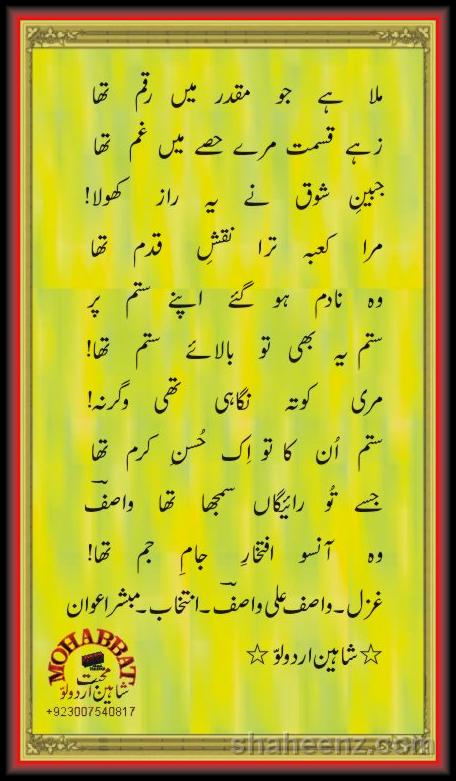 ملا ہے جو مقدر میں رقم تھا
زہے قسمت مرے حصے میں غم تھا
جبینِ شوق نے یہ راز کھولا!
مرا کعبہ ترا نقشِ قدم تھا
وہ نادم ہو گئے اپنے ستم پر
ستم یہ بھی تو بالائے ستم تھا!
مری کوتہ نگاہی تھی وگرنہ!
ستم اُن کا تو اِک حُسنِ کرم تھا
جسے تُو رائیگاں سمجھا تھا واصفؔ
وہ آنسو افتخارِ جامِ جم تھا!
غزل۔واصف علی واصفؔ۔انتخاب۔مبشر اعوان
☆شاہین اردولوّ☆
MOHABBAT
محبت
شاہین اردولوّ
+923007540817
shaheenz.com